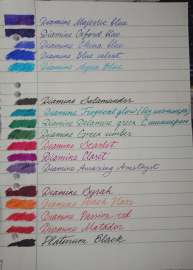 Diamine Majestic blue
Diamine Oxford blue
Diamine China blue
Diamine Blue velvet
Diamine Aqua blue
Diamine Salamander
Diamine Tropical glow
Diamine green
Diamine Green umber
Diamine Scarlet
Diamine Claret
Diamine Amazing Amethyst
Diamine Syrah
Diamine Peach Haze
Diamine Passion red
Diamine Matador
Platinum Black